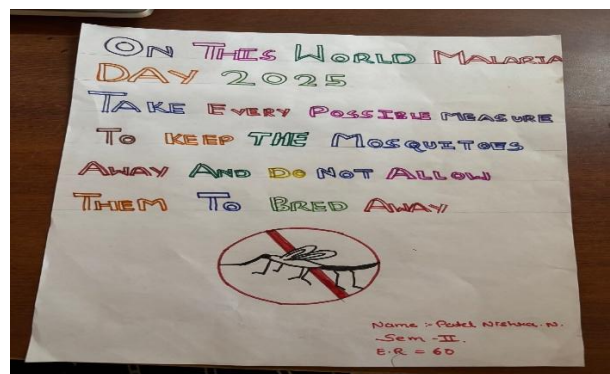 ON THIS WORLD MALARIA
DAY 2025
TAKE EVERY POSSIBLE MEASURE
TO KEEP THE MOSQUITOES
AWAY AND DO NOT ALLOW
THEM TO BRED AWAY
Name :- Patel Nishka. N.
Sem - II.
E.R = 60